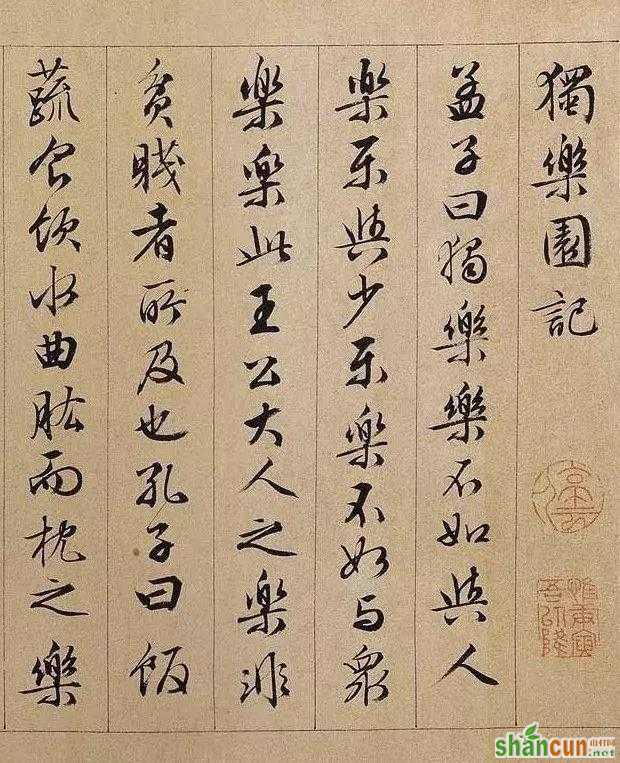 獨樂園記
孟子曰獨樂樂不如與人
樂樂與少樂樂不如與眾
樂樂此王公大人之樂非
貧賤者所及也孔子曰飯
蔬食飲水曲肱而枕之樂
停云
惟庚寅吾以降
shancun
.net